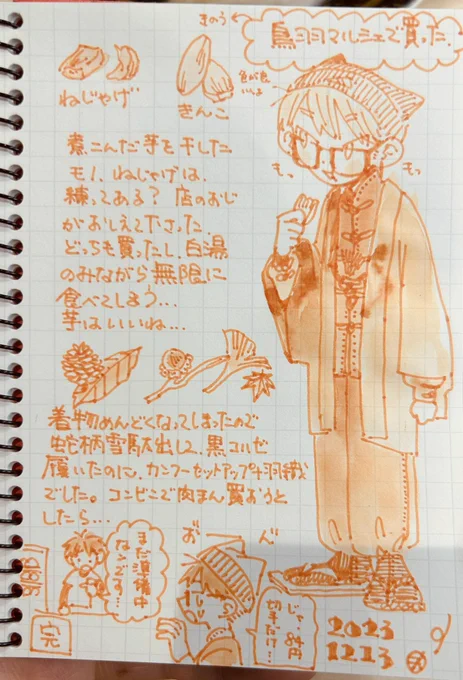 きのう
鳥羽マルシェで買った
ねじゃげ
きんこ
色が良
いしょ
煮こんだ芋を干した
モノ、ねじゃげは、
練ってある? 店のおじ
がおしえてたさった
どっちも買ったし、白湯
のみながら無限に
食べてしまう…
芋はいいね…
もっ
もっ
着物めんどくなってしまったので
蛇柄雪駄出して、黒コルゼ
履いたのに、カンフーセットアップ+羽織
でした。コンビニで肉まん買おうと
したら…
まだ準備中
なんです…
おん
じゃ、84円
切手だけ…
完
2023
1213